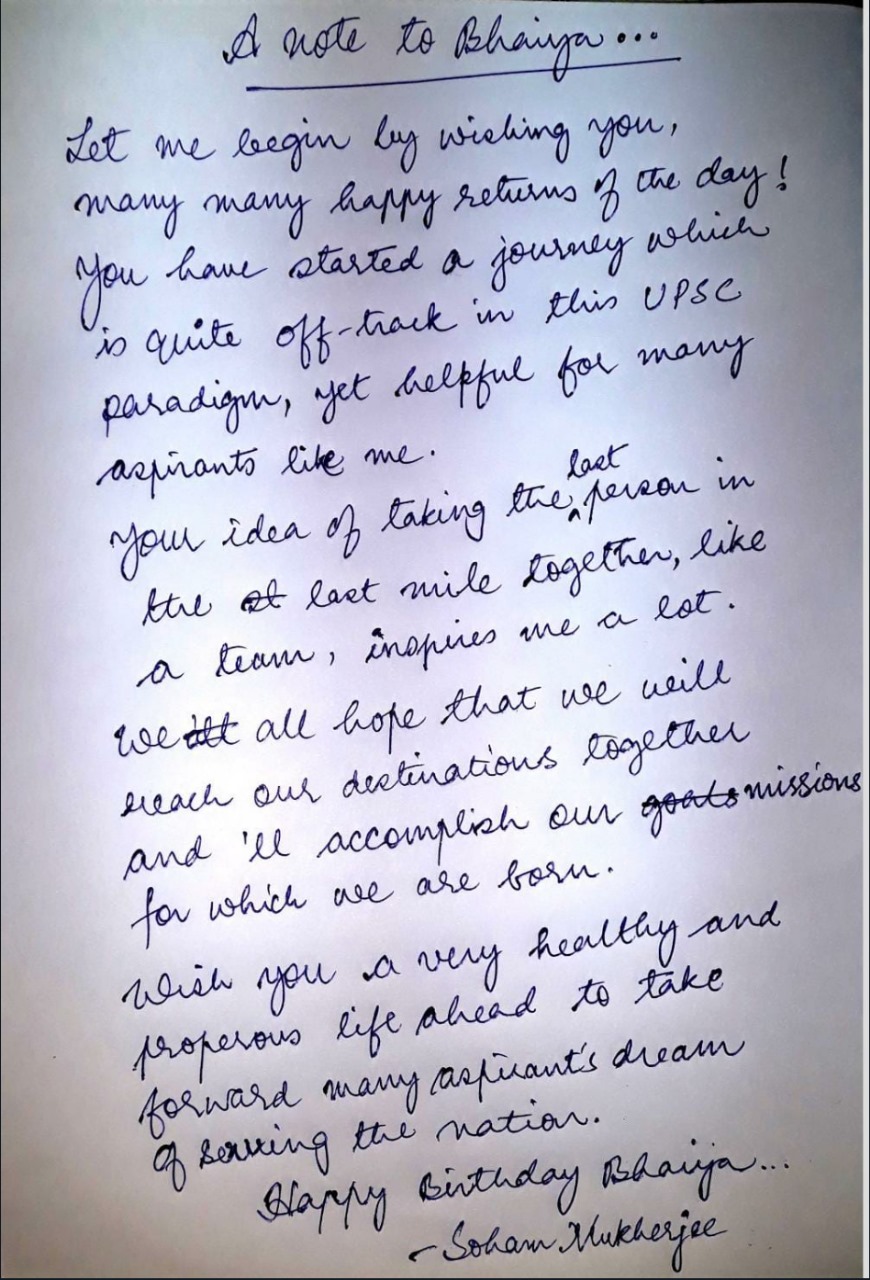 A note to Bhaiya...
Let me begin by wishing you,
many many happy returns of the day!
You have started a journey which
is quite off-track in this UPSC
paradigm, yet helpful for many
aspirants like me.
Your idea of taking the last person in
the st last mile together, like
a team, inspires me a lot.
We all hope that we will
reach our destinations together
and 'll accomplish our goals missions
for which we are born.
Wish you a very healthy and
properous life ahead to take
forward many aspirant's dream
of serving the nation.
Happy Birthday Bhaiya...
- Soham Mukherjee